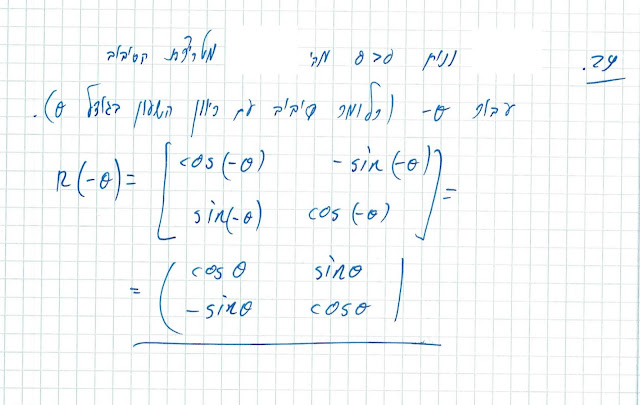 צד. נניח סכס מהי מטריצת הסיבוב
עבור -θ (כלומר סיבוב עם כיוון השעון בגודל θ).
R(-θ) = [cos(-θ) -sin(-θ)
sin(-θ) cos(-θ)] =
= (cos θ sin θ
-sin θ cos θ|